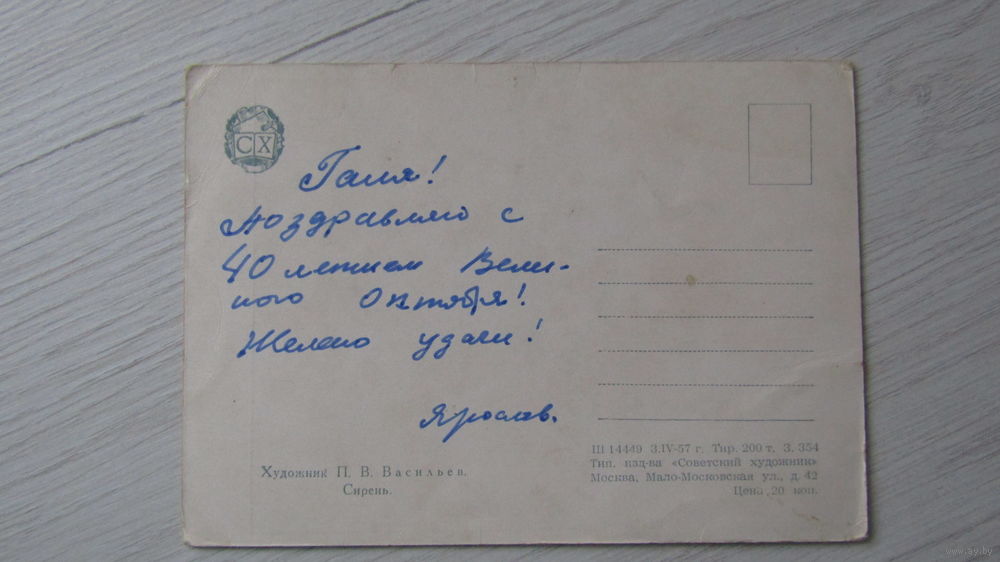 СХ
Галя!
Поздравляю с
40 летием Вели-
кого Октября!
Желаю удачи!
Ярослав.
Художник П. В. Васильев.
Сирень.
Ш 14449 3.IV-57 г. Тир. 200 т. З. 354
Тип. изд-ва «Советский художник»
Москва, Мало-Московская ул., д. 42
Цена 20 коп.
www.ay.by